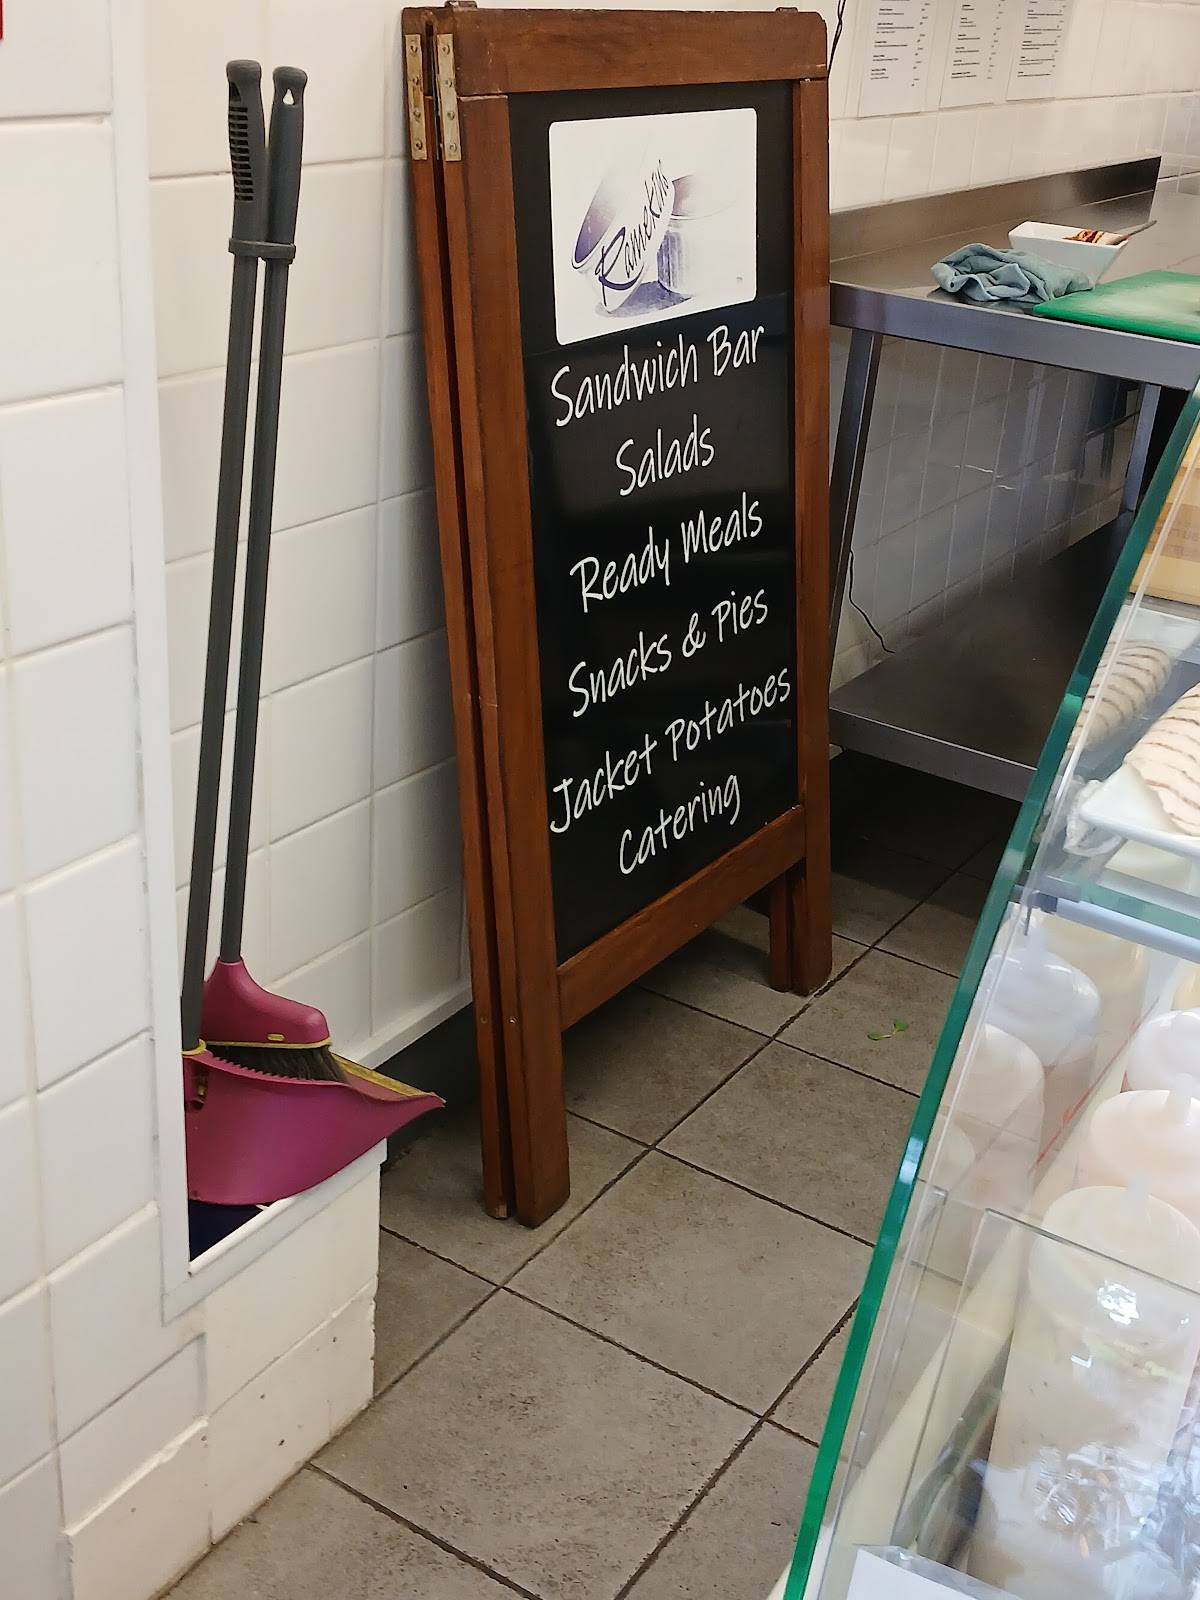 Ramekins
Sandwich Bar
Salads
Ready Meals
Snacks & Pies
Jacket Potatoes
Catering